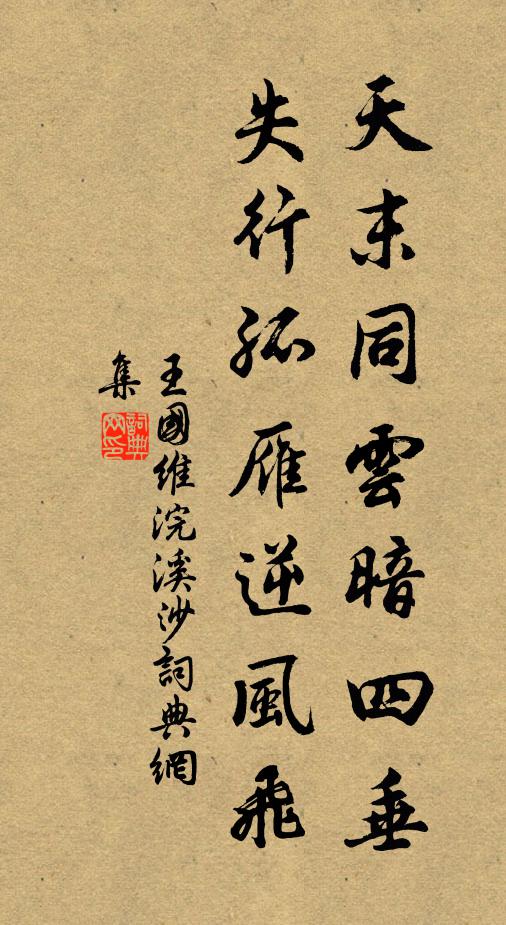 天末同雲暗四垂
失行孤雁逆風飛
王國維浣溪沙詞典網
集
詞典網印